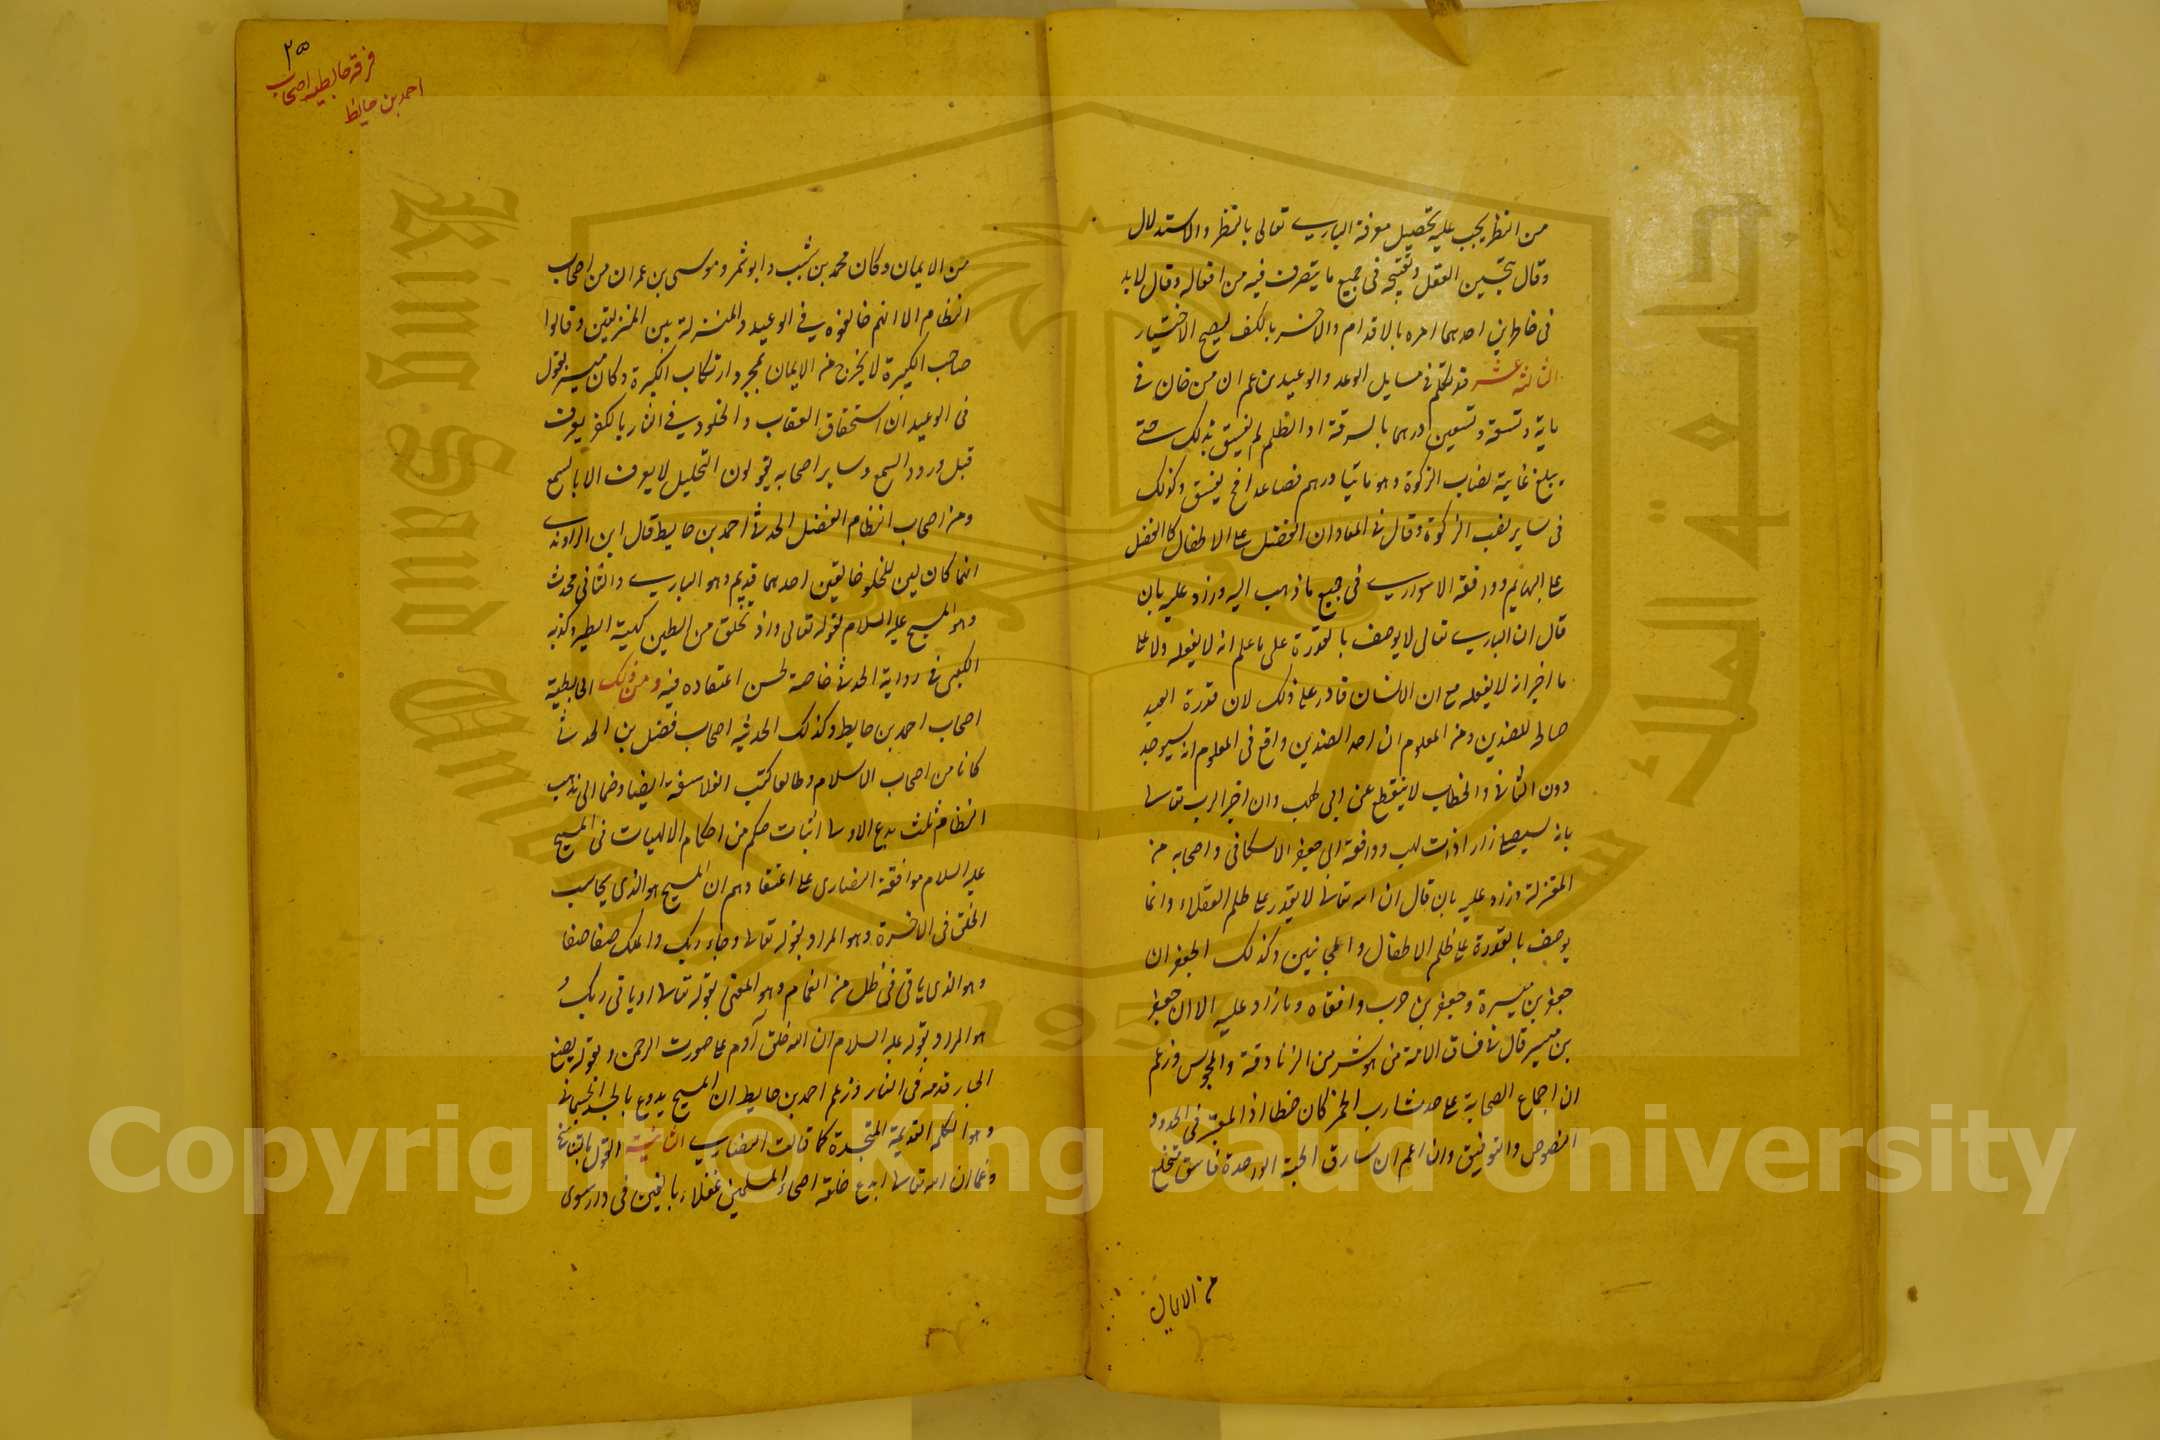 من النظر يجب عليه تحصيل معرفة الباري تعالى بالنظر والاستدلال
وقال بتحسين العقل وتقبيحه في جميع ما يتصرف فيه من افعاله وقال لا بد
في خاطرين احدهما امره بالاقدام والاخر بالكف ليصح الاختيار
الثالثة عشر قد تكلم في مسايل الوعد والوعيد من زعم ان من خان في
ماية وتسعة وتسعين درهما بالسرقة او الظلم لم يفسق بذلك حتى
يبلغ غايته نصاب الزكوة وهو مائتا درهم فصاعدا فح يفسق وكذلك
في ساير نصب الزكوة وقال في المعاد ان الفضل على الاطفال كالفضل
على البهايم ووافقه الاسواري في جميع ما ذهب اليه وزاد عليه بان
قال ان الباري تعالى لا يوصف بالقدرة على ما علم انه لا يفعله ولا على
ما اخبر انه لا يفعله مع ان الانسان قادر على ذلك لان قدرة العبد
صالح للضدين ومن المعلوم ان احد الضدين واقع في المعلوم انه سيوجد
دون الثاني والخطاب لا ينقطع عن ابي لهب وان اخبر الرب تعالى
بانه سيصلى نارا ذات لهب ووافقه ابي جعفر الاسكافي واصحابه من
المعتزلة وزاد عليه بان قال ان الله تعالى لا يقدر على ظلم العقلاء وانما
يوصف بالقدرة على ظلم الاطفال والمجانين وكذلك الجعفران
جعفر بن ميسرة وجعفر بن حرب وافقاه وما زاد عليه الا ان جعفر
بن ميسر قال في فساق الامة من هو شر من الزنادقة والمجوس وزعم
ان اجماع الصحابة على حد شارب الخمر كان خطا اذ المعتبر في الحدود
النصوص والتوفيق وان اعم ان سارق الحبة الواحدة فاسق منخلع
من الايمان
٢٥
فرقه حابطيه اصحاب
احمد بن حايط
من الايمان وكان محمد بن شبيب وابو شمر وموسى بن عمران من اصحاب
النظام الا انهم خالفوه في الوعيد والمنزلة بين المنزلتين وقالوا
صاحب الكبيرة لا يخرج من الايمان بمجرد ارتكاب الكبيرة وكان ميسر يقول
في الوعيد ان استحقاق العقاب والخلود في النار بالكفر يعرف
قبل ورود السمع وساير اصحابه يقولون التخليل لا يعرف الا بالسمع
ومن اصحاب النظام الفضل الحدثي احمد بن حايط قال ابن الراوندي
انما كان لين للخلق خالقين احدهما قديم وهو الباري والثاني محدث
وهو المسيح عليه السلام لقوله تعالى واذ تخلق من الطين كهيئة الطير وكذبه
الكعبي في رواية الحدثي خاصة لحسن اعتقاده فيه ومن ذلك الحابطية
اصحاب احمد بن حايط وكذلك الحدثيه اصحاب فضل بن الحدثي
كانا من اصحاب الاسلام وطالعا كتب الفلاسفة ايضا وضما الى مذهب
النظام ثلث بدع الاولى اثبات حكم من احكام الالهيات في المسيح
عليه السلام موافقة النصارى على اعتقادهم ان المسيح هو الذي يحاسب
الخلق في الاخرة وهو المراد بقوله تعالى وجاء ربك والملك صفا صفا
وهو الذي ياتي في ظل من الغمام وهو المعنى بقوله تعالى او ياتي ربك و
هو المراد بقوله عليه السلام ان الله خلق آدم على صورت الرحمن وبقوله يضع
الجبار قدمه في النار وزعم احمد بن حايط ان المسيح يدوع بالجسد الجسماني
وهو الكلمه القديمة المتجسدة كما قالت النصارى الثانية القول بالتناسخ
وزعما ان الله تعالى ابدع خلقه اصحاء المسلمين عقلاء بالغين في دار سوى
Copyright © King Saud University
جامعة الملك سعود
King Saud University
1957